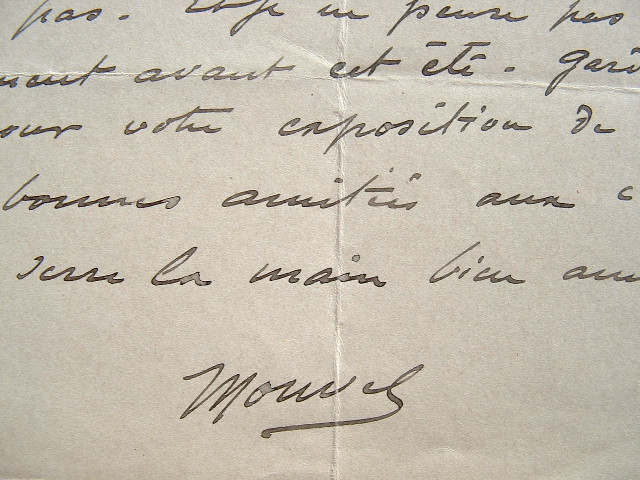 pas. Et je ne pense pas
ment avant cet été. Gar
our votre exposition de
bonnes amitiés aux c
serre la main bien am
Mouvel